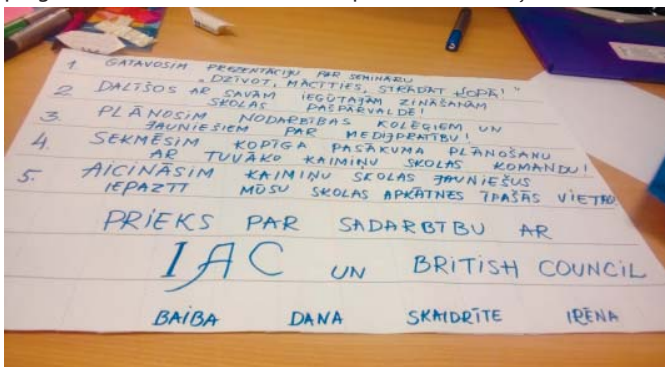 1. GATAVOSIM PREZENTĀCIJU PAR SEMINĀRU
"DZĪVOT, MĀCĪTIES, STRĀDĀT KOPĀ!"
2. DALĪŠOS AR SAVĀM IEGŪTAJĀM ZINĀŠANĀM
SKOLAS PAŠPĀRVALDĒ!
3. PLĀNOSIM NODARBĪBAS KOLĒĢIEM UN
JAUNIEŠIEM PAR MEDIJPRATĪBU!
4. SEKMĒSIM KOPĪGA PASĀKUMA PLĀNOŠANU
AR TUVĀKO KAIMIŅU SKOLAS KOMANDU!
5. AICINĀSIM KAIMIŅU SKOLAS JAUNIEŠUS
IEPAZĪT MŪSU SKOLAS APKĀTNES ĪPAŠĀS VIETAS
PRIEKS PAR SADARBĪBU AR
IAC UN BRITISH COUNCIL
BAIBA DANA SKAIDRĪTE IRĒNA